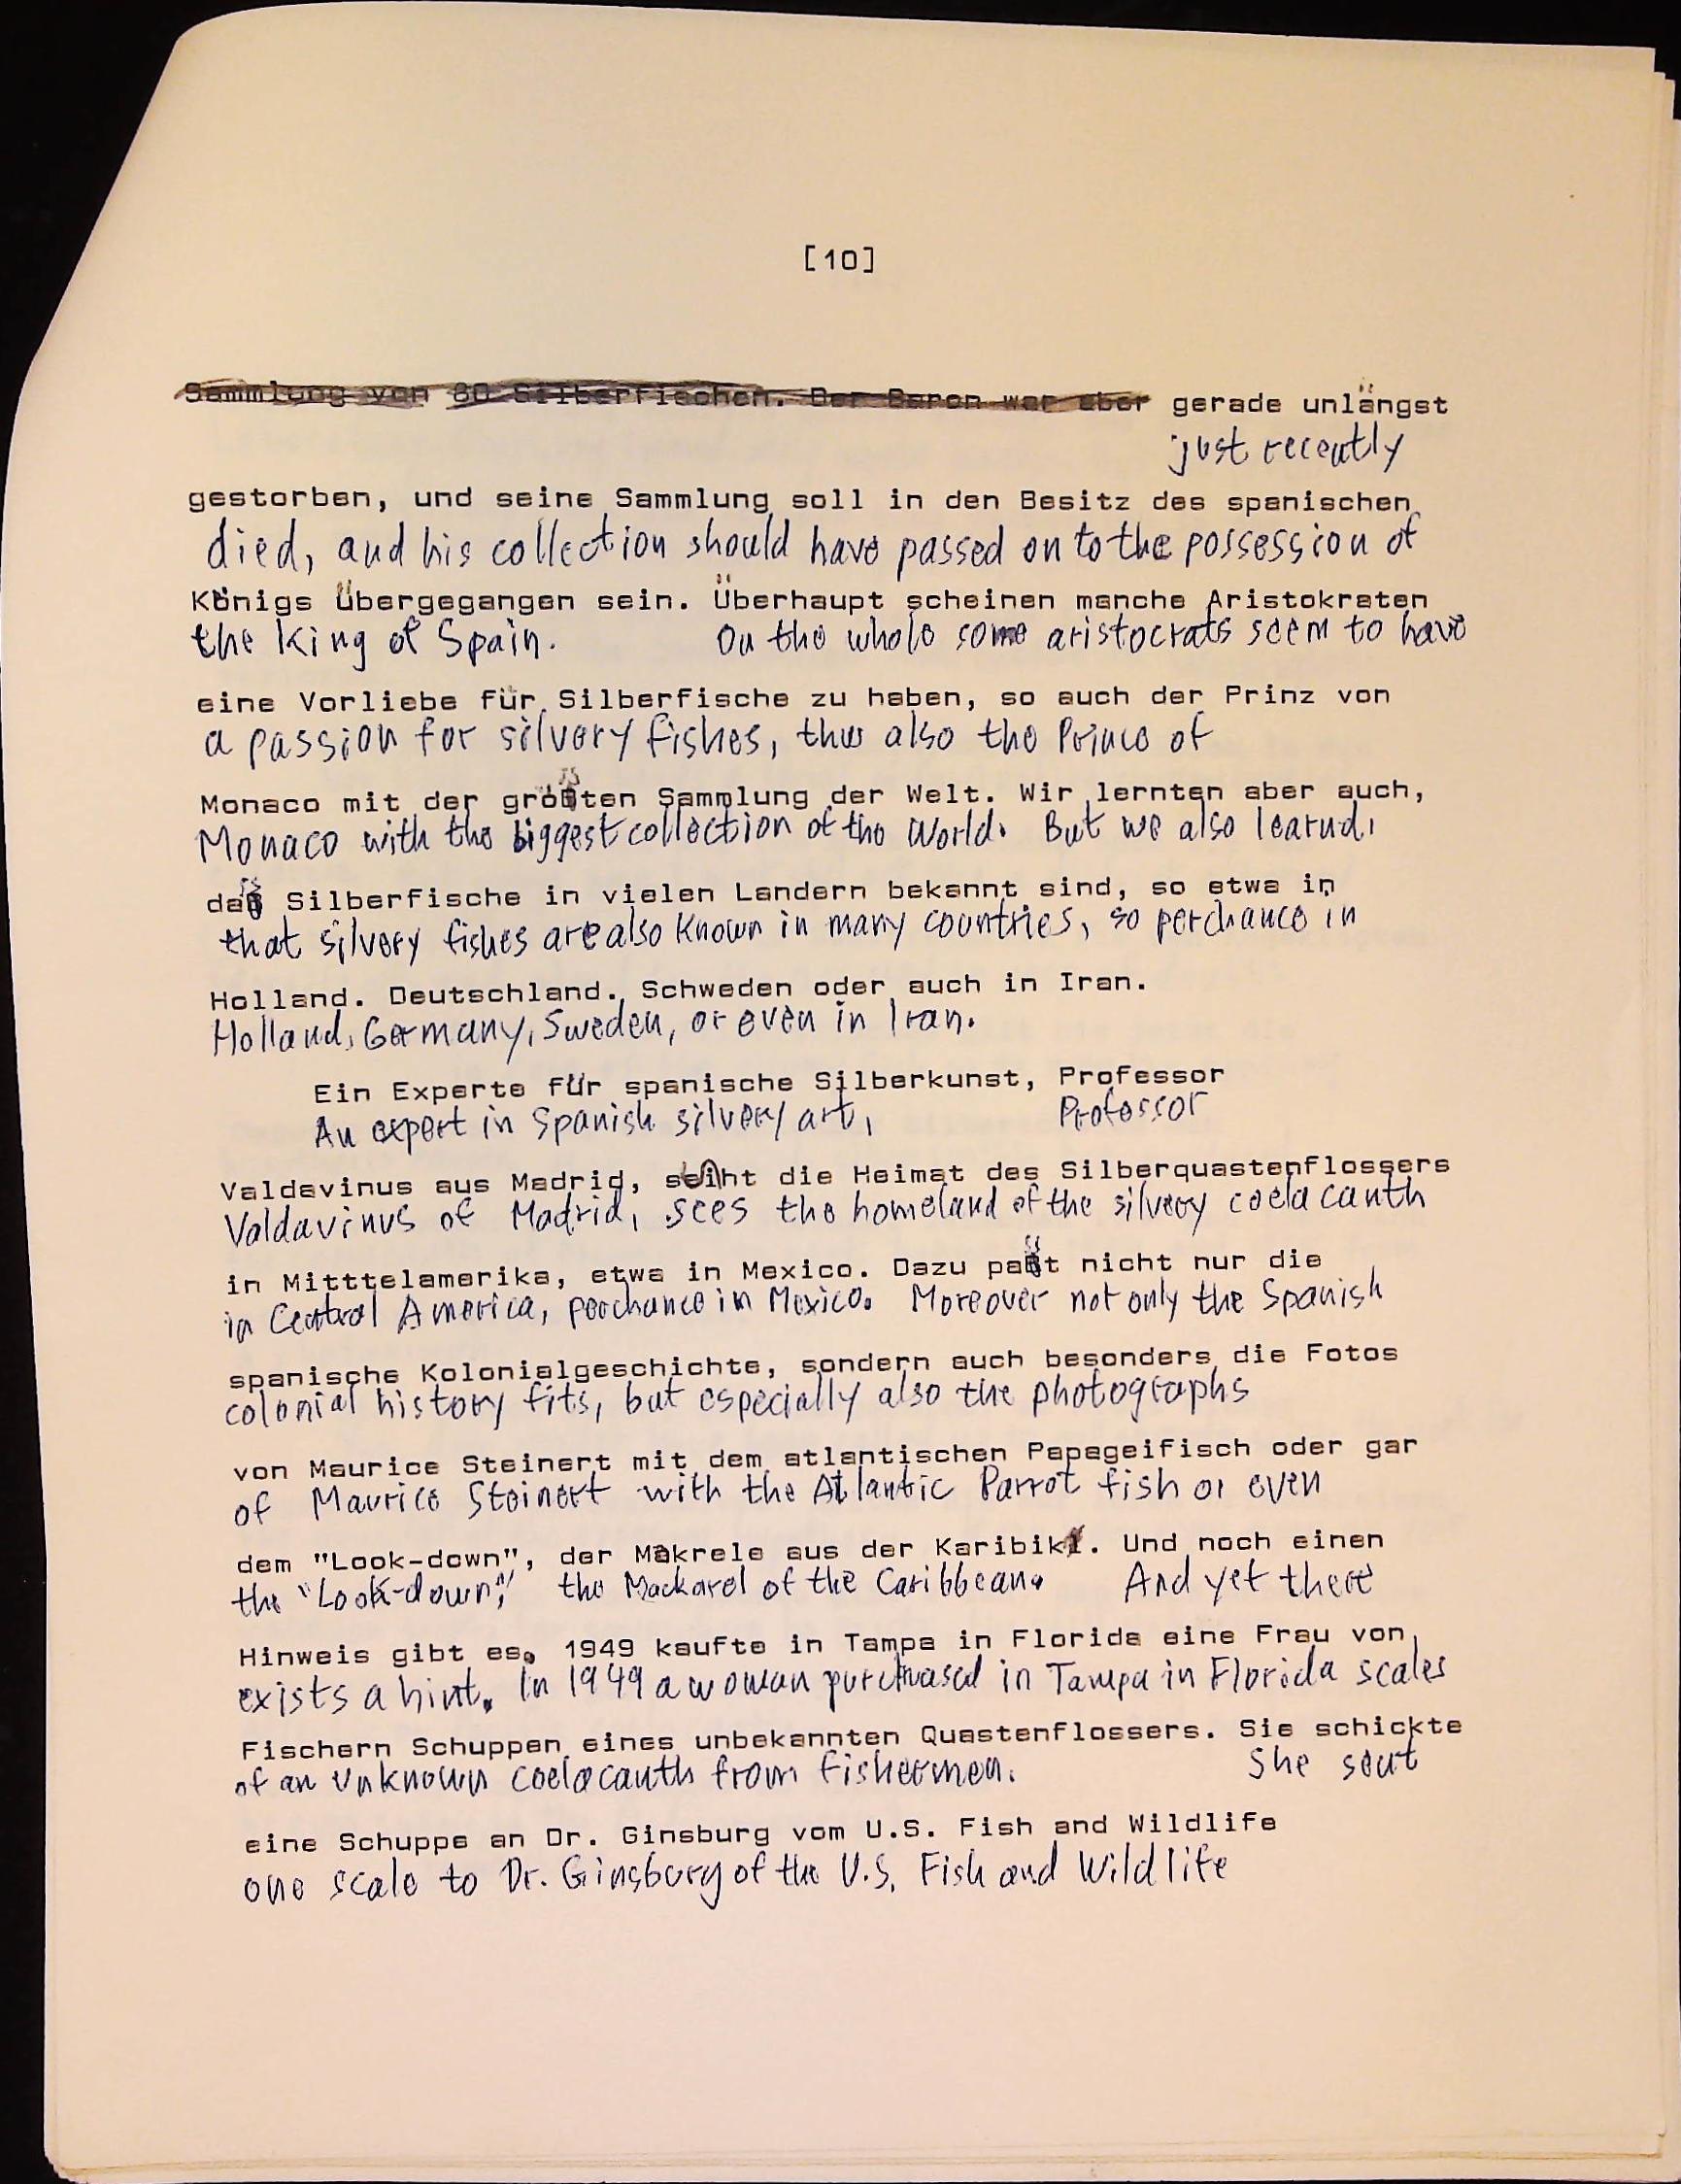 [10]
Sammlung von 80 Silberfischen. Der Baron war aber gerade unlängst
just recently
gestorben, und seine Sammlung soll in den Besitz des spanischen
died, and his collection should have passed on to the possession of
Königs übergegangen sein. Überhaupt scheinen manche Aristokraten
the King of Spain. On the whole some aristocrats seem to have
eine Vorliebe für Silberfische zu haben, so auch der Prinz von
a passion for silvery fishes, thus also the Prince of
Monaco mit der größten Sammlung der Welt. Wir lernten aber auch,
Monaco with the biggest collection of the World. But we also learnd,
daß Silberfische in vielen Landern bekannt sind, so etwa in
that silvery fishes are also known in many countries, so perchance in
Holland. Deutschland. Schweden oder auch in Iran.
Holland, Germany, Sweden, or even in Iran.
Ein Experte für spanische Silberkunst, Professor
An expert in Spanish silvery art, Professor
Valdavinus aus Madrid, seiht die Heimat des Silberquastenflossers
Valdavinus of Madrid, sees the homeland of the silvery coelacanth
in Mitttelamerika, etwa in Mexico. Dazu paßt nicht nur die
in Central America, perchance in Mexico. Moreover not only the Spanish
spanische Kolonialgeschichte, sondern auch besonders die Fotos
colonial history fits, but especially also the photographs
von Maurice Steinert mit dem atlantischen Papageifisch oder gar
of Maurice Steinert with the Atlantic Parrot fish or even
dem "Look-down", der Makrele aus der Karibik. Und noch einen
the "Look-down", the Mackarel of the Caribbean. And yet there
Hinweis gibt es. 1949 kaufte in Tampa in Florida eine Frau von
exists a hint. In 1949 a woman purchased in Tampa in Florida scales
Fischern Schuppen eines unbekannten Quastenflossers. Sie schickte
of an unknown coelacanth from fishermen. She sent
eine Schuppe an Dr. Ginsburg vom U.S. Fish and Wildlife
one scale to Dr. Ginsburg of the U.S. Fish and Wildlife